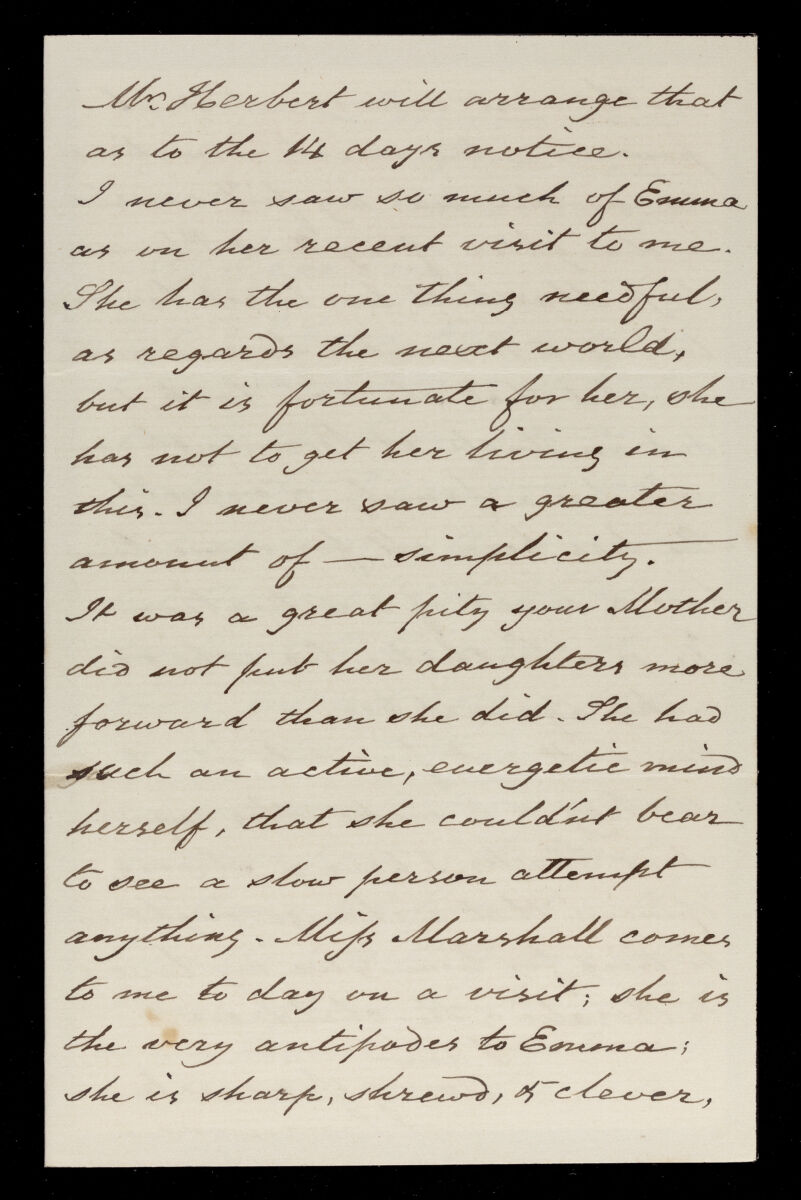 Mr. Herbert will arrange that
as to the 14 days notice.
I never saw so much of Emma
as on her recent visit to me.
She has the one thing needful,
as regards the next world,
but it is fortunate for her, she
has not to get her living in
this. I never saw a greater
amount of — simplicity.
It was a great pity your Mother
did not put her daughters more
forward than she did. She had
such an active, energetic mind
herself, that she could'nt bear
to see a slow person attempt
anything. Miss Marshall comes
to me to day on a visit; she is
the very antipodes to Emma;
she is sharp, shrewd, & clever,